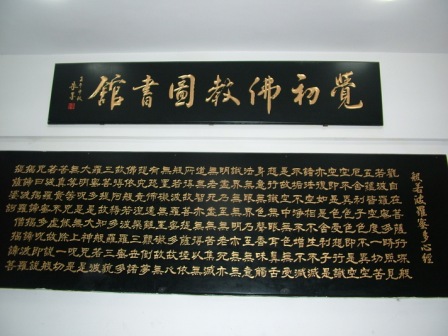 覺初佛教圖書館
般若波羅蜜多心經
觀自在菩薩行深般
若波羅蜜多時照見
五蘊皆空度一切苦
厄舍利子色不異空
空不異色色即是空
空即是色受想行識
亦復如是舍利子是
諸法空相不生不滅
不垢不淨不增不減
是故空中無色無受
想行識無眼耳鼻舌
身意無色聲香味觸
法無眼界乃至無意
識界無無明亦無無
明盡乃至無老死亦
無老死盡無苦集滅
道無智亦無得以無
所得故菩提薩埵依
般若波羅蜜多故心
無罣礙無罣礙故無
有恐怖遠離顛倒夢
想究竟涅槃三世諸
佛依般若波羅蜜多
故得阿耨多羅三藐
三菩提故知般若波
羅蜜多是大神咒是
大明咒是無上咒是
無等等咒能除一切
苦真實不虛故說般
若波羅蜜多咒即說
咒曰揭諦揭諦波羅